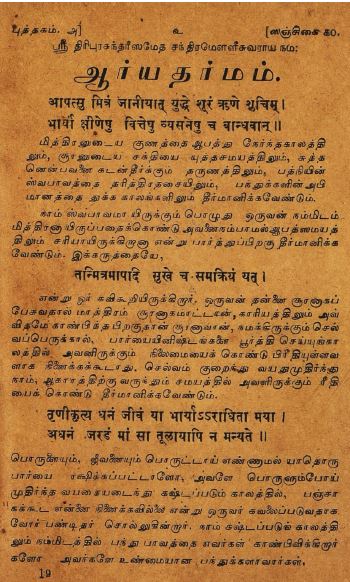 புத்தகம். அ] உ [ஸஞ்சிகை ௧௦.
ஸ்ரீ திரிபுரசுந்தரீஸமேத சந்திரமௌளீசுவராய நம:
ஆர்யதர்மம்.
आपत्सु मित्रं जानीयात् युद्धे शूरं ऋणे शुचिम् ।
भार्यां क्षीणेषु वित्तेषु व्यसनेषु च बान्धवान् ॥
மித்திரனுடைய குணத்தை ஆபத்து நேர்ந்தகாலத்தி
லும், சூரனுடைய சக்தியை யுத்தசமயத்திலும், சுத்த
னென்பவனை கடன்தீர்க்கும் தருணத்திலும், பத்நியின்
ஸ்வபாவத்தை தரித்திரதசையிலும், பந்துக்களின் அபி
மானத்தை துக்க காலங்களிலும் தீர்மானிக்கவேண்டும்.
நாம் ஸ்வபாவமா யிருக்கும் பொழுது ஒருவன் நம்மிடம்
மித்திரனாயிருப்பதைக்கொண்டு அவனைநம்பாமல் ஆபத்ஸமயத்
திலும் சரியாயிருக்கிறானா என்று பார்த்துப்பிறகு தீர்மானிக்க
வேண்டும். இக்கருத்தையே,
तन्मित्रमापदि सुखे च समक्रियं यत् ।
என்று ஓர் கவிகூறியிருக்கிறார். ஒருவன் தன்னை சூரனாகப்
பேசுவதால் மாத்திரம் சூரனாகமாட்டான், காரியத்திலும் அவ்
விதமே காண்பித்த பிறகுதான் சூரனாவான், நமக்கிருக்கும் செல்
வப்பெருக்கால், பார்யையினிஷ்டங்களை பூர்த்தி செய்யுங்கா
லத்தில் அவளிருக்கும் நிலைமையைக் கொண்டு பிரீதியுள்ளவ
ளாக நினைக்கக்கூடாது, செல்வம் குறைந்து வயதுமுதிர்ந்து
நாம், ஆகாரத்திற்கு வருந்தும் சமயத்தில் அவளிருக்கும் ரீதி
யைக் கொண்டு தீர்மானிக்கவேண்டும்.
तृणीकृत्य धनं जीवं या भार्याऽऽराधिता मया ।
अधनं जरडं मां सा तूलायापि न मन्यते ॥
பொருளையும், ஜீவனையும் பொருட்டாய் எண்ணாமல் யாதொரு
பார்யை ரக்ஷிக்கப்பட்டாளோ, அவளே பொருளும்போய்
முதிர்ந்த வயஸையடைந்து கஷ்டப்படும் காலத்தில், பஞ்சா
கக்கூட என்னை நினைக்கவில்லை என்று ஒருவர் கவலைப்படுவதாக
வோர் பண்டிதர் சொல்லுகின்றார். நாம் கஷ்டப்படுங் காலத்தி
லும் நம்மிடத்தில் பந்து பாவத்தை எவர்கள் காண்பிவிக்கிறார்
களோ அவர்களே உண்மையான பந்துக்களாவார்கள்.
19